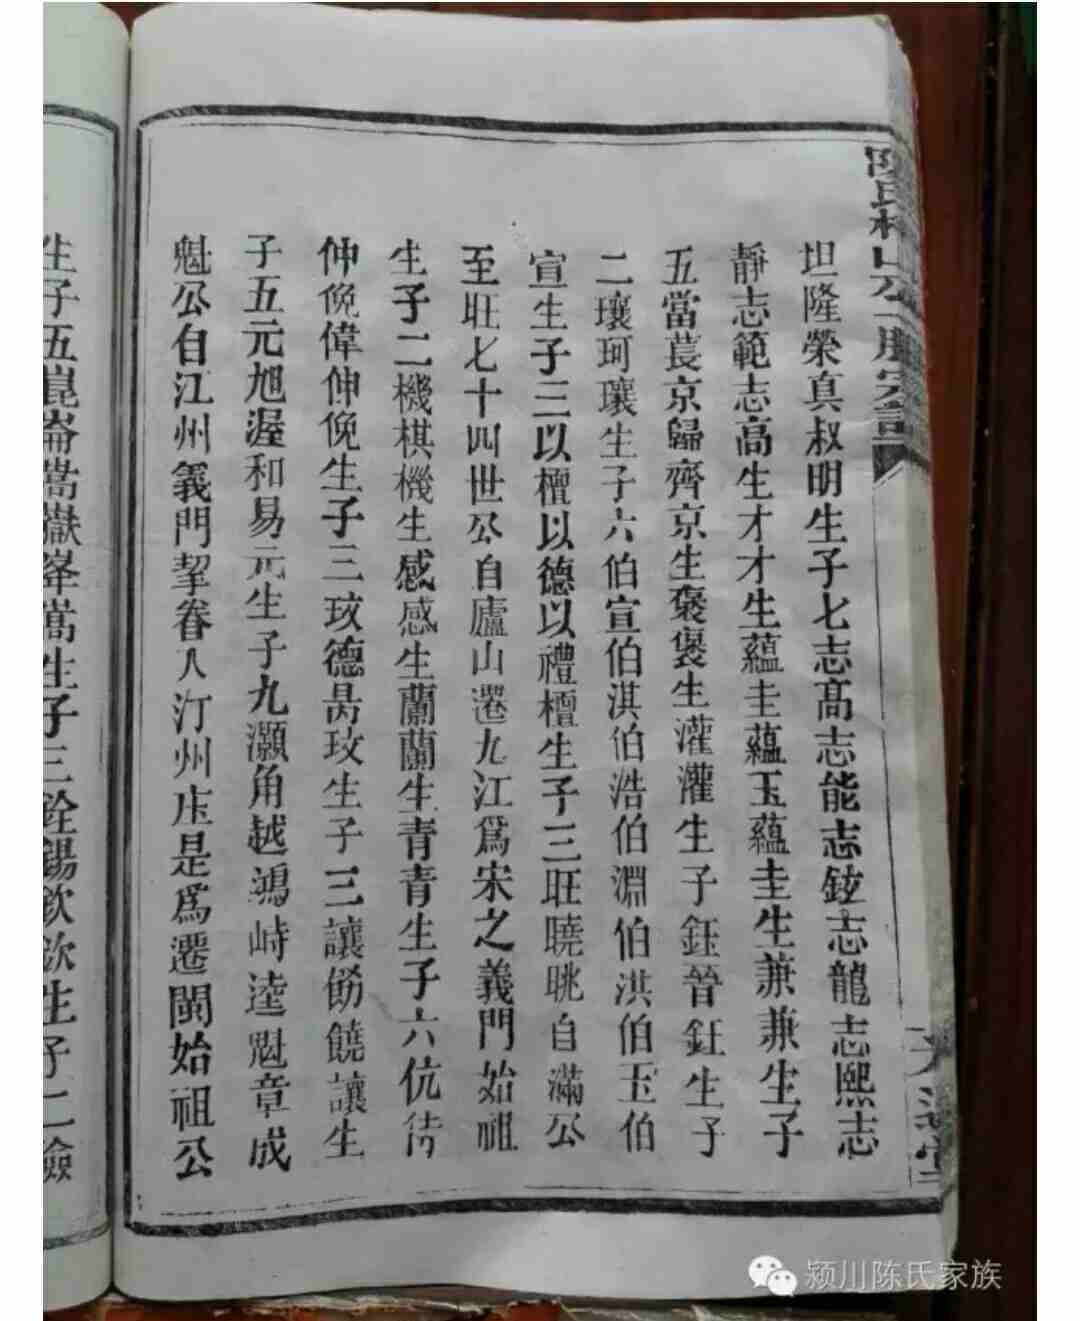 坦隆榮真叔明生子七志高志能志鉉志龍志熙志
靜志範志高生才才生蘊圭蘊玉蘊圭生兼兼生子
五當萇京歸齊京生褒褒生灌灌生子鈺晉鈺生子
二瓖珂瓖生子六伯宣伯淇伯浩伯淵伯洪伯玉伯
宣生子三以檀以德以禮檀生子三旺曉晀自滿公
至旺七十四世公自廬山遷九江爲宋之義門始祖
生子二機棋機生感感生蘭蘭生青青生子六伉待
仲俛偉伸俛生子三玫德昺玫生子三讓餝饒讓生
子五元旭渥和易元生子九灝角越鴻峙逵魁章成
魁公自江州義門挈眷入汀州庄是爲遷閩始祖公
生子五崑崙嵩嶽峯嵩生子三銓錫欽欽生子二險
颍川陈氏家族